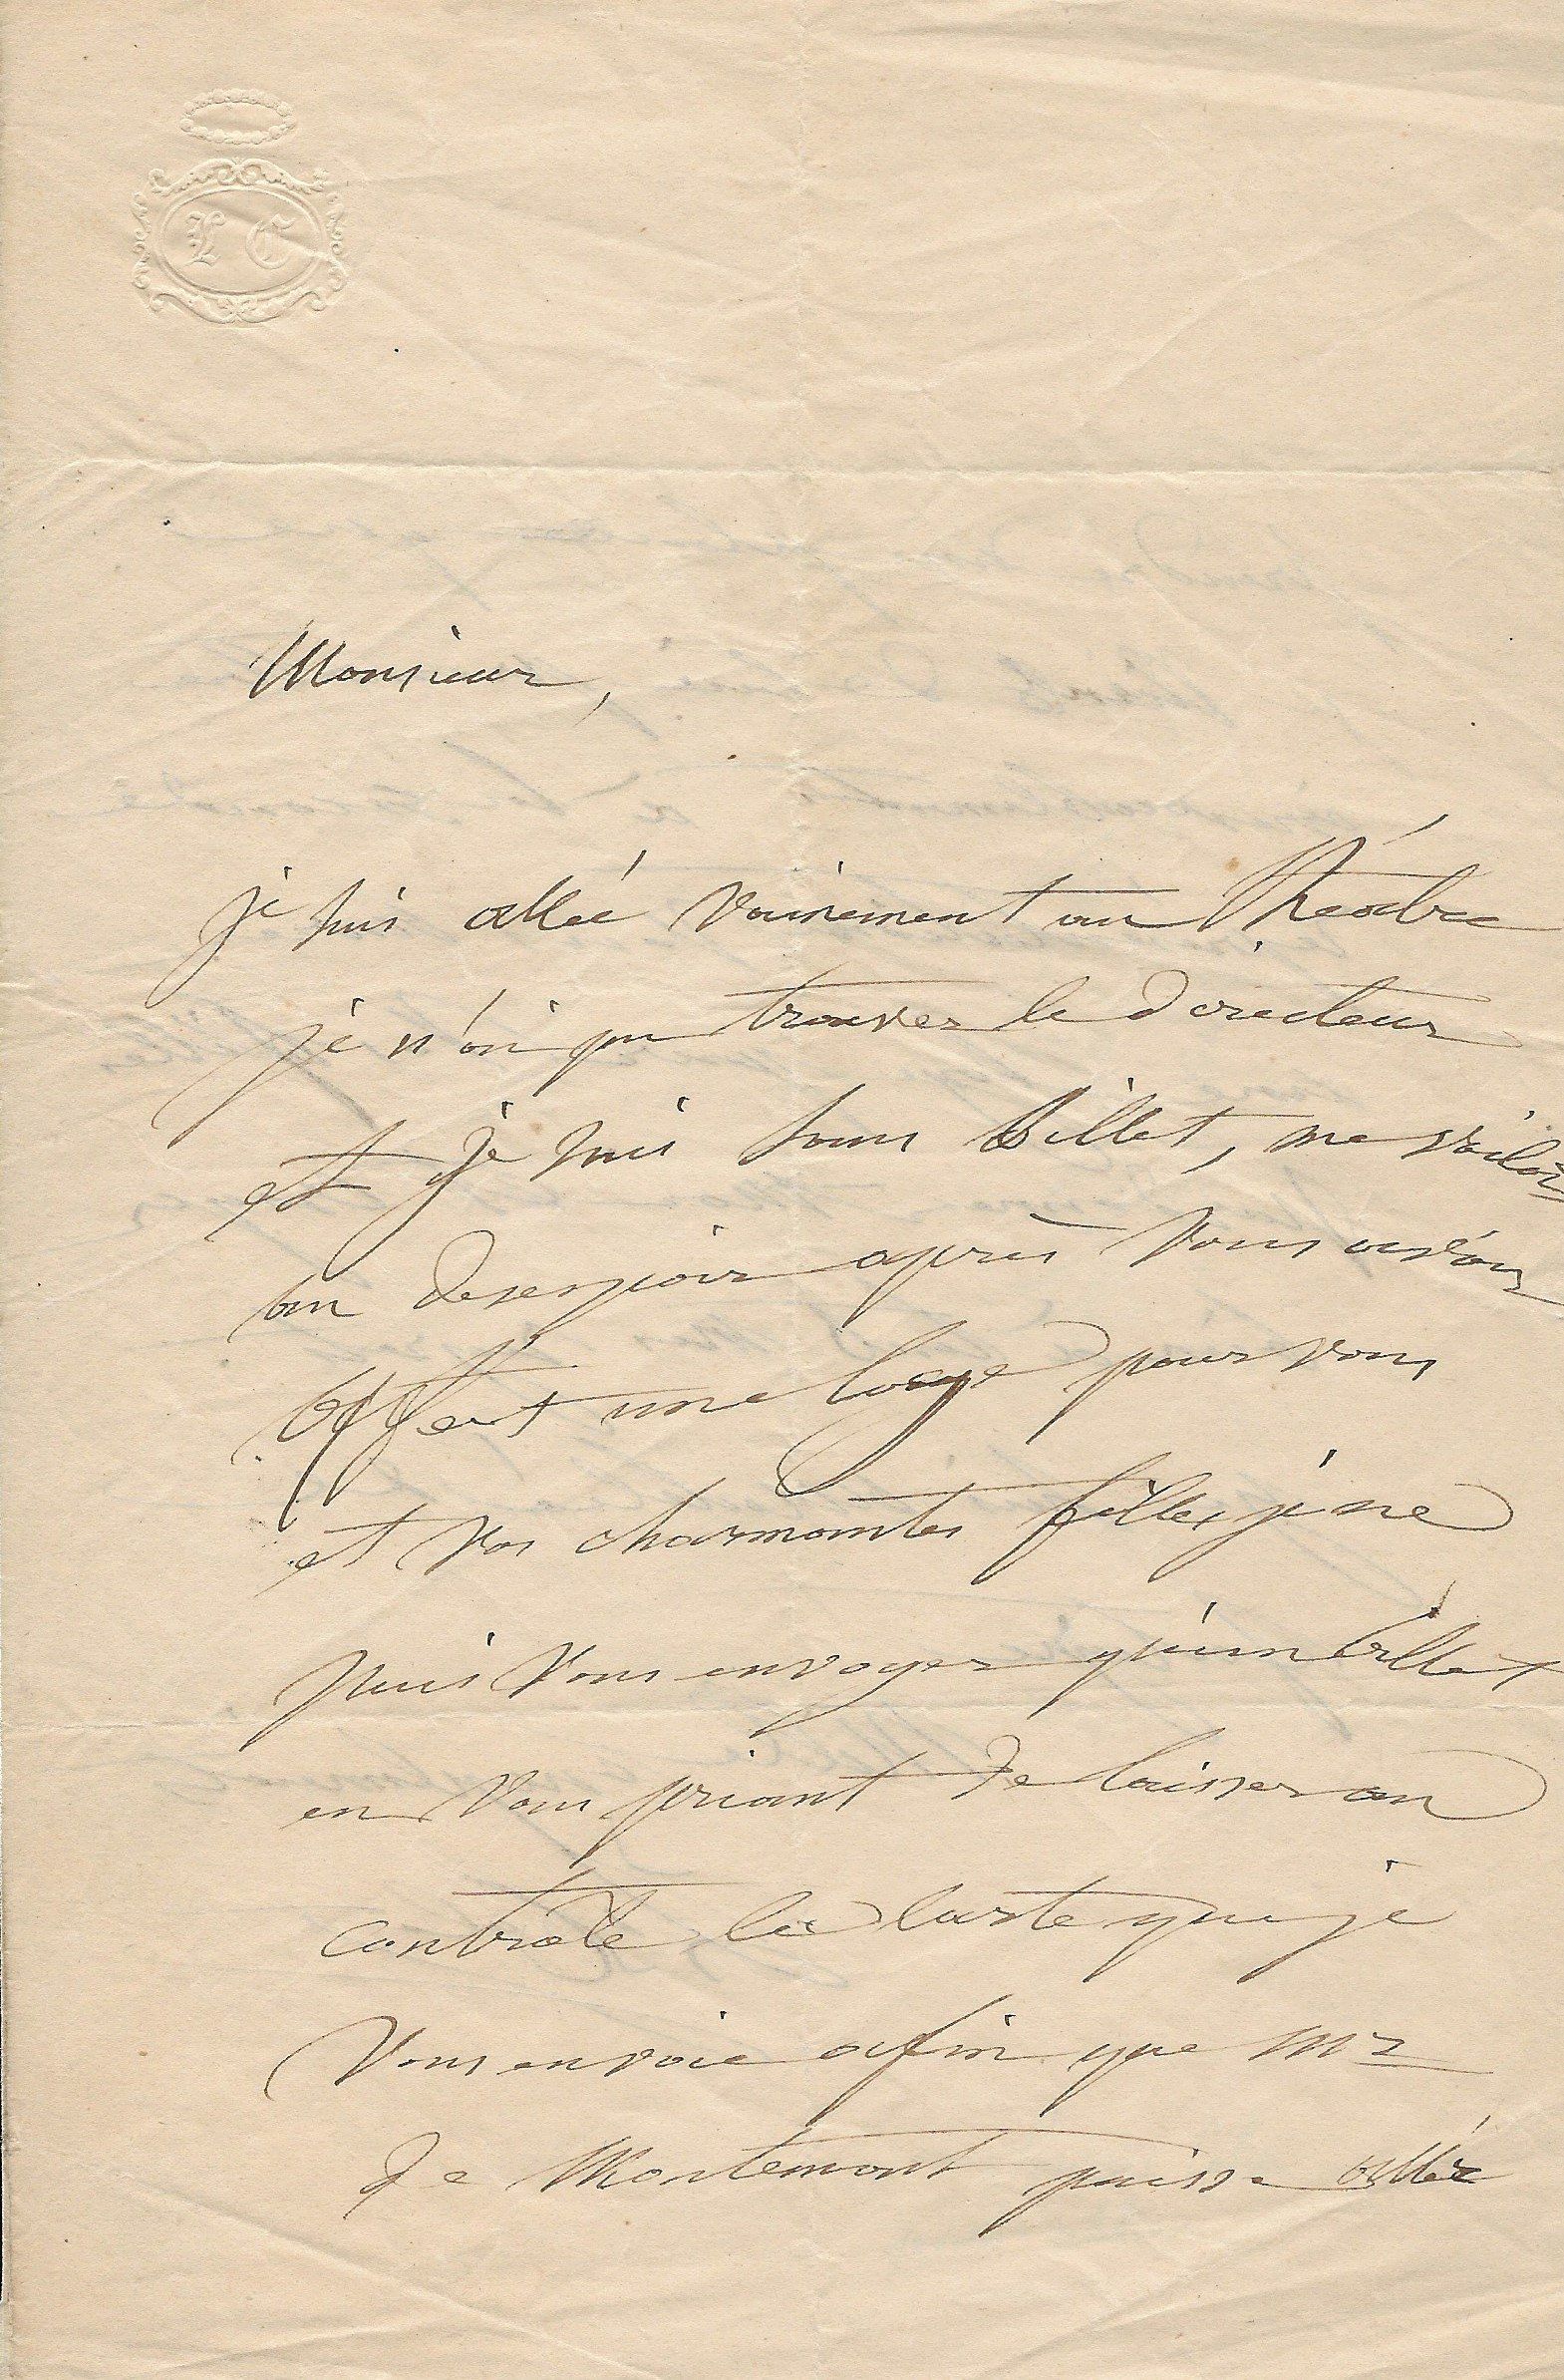 L C
Monsieur,
je suis allée vainement au Théatre
je n'ai pu trouver le directeur
et je suis sans Billet, me voilà
au desespoir après vous avoir
offert une loge pour vous
et vos charmantes filles je ne
puis vous envoyer qu'un billet
en vous priant de laisser au
contrôle la carte que je
vous envoie afin que Mr
de Montemont puisse aller